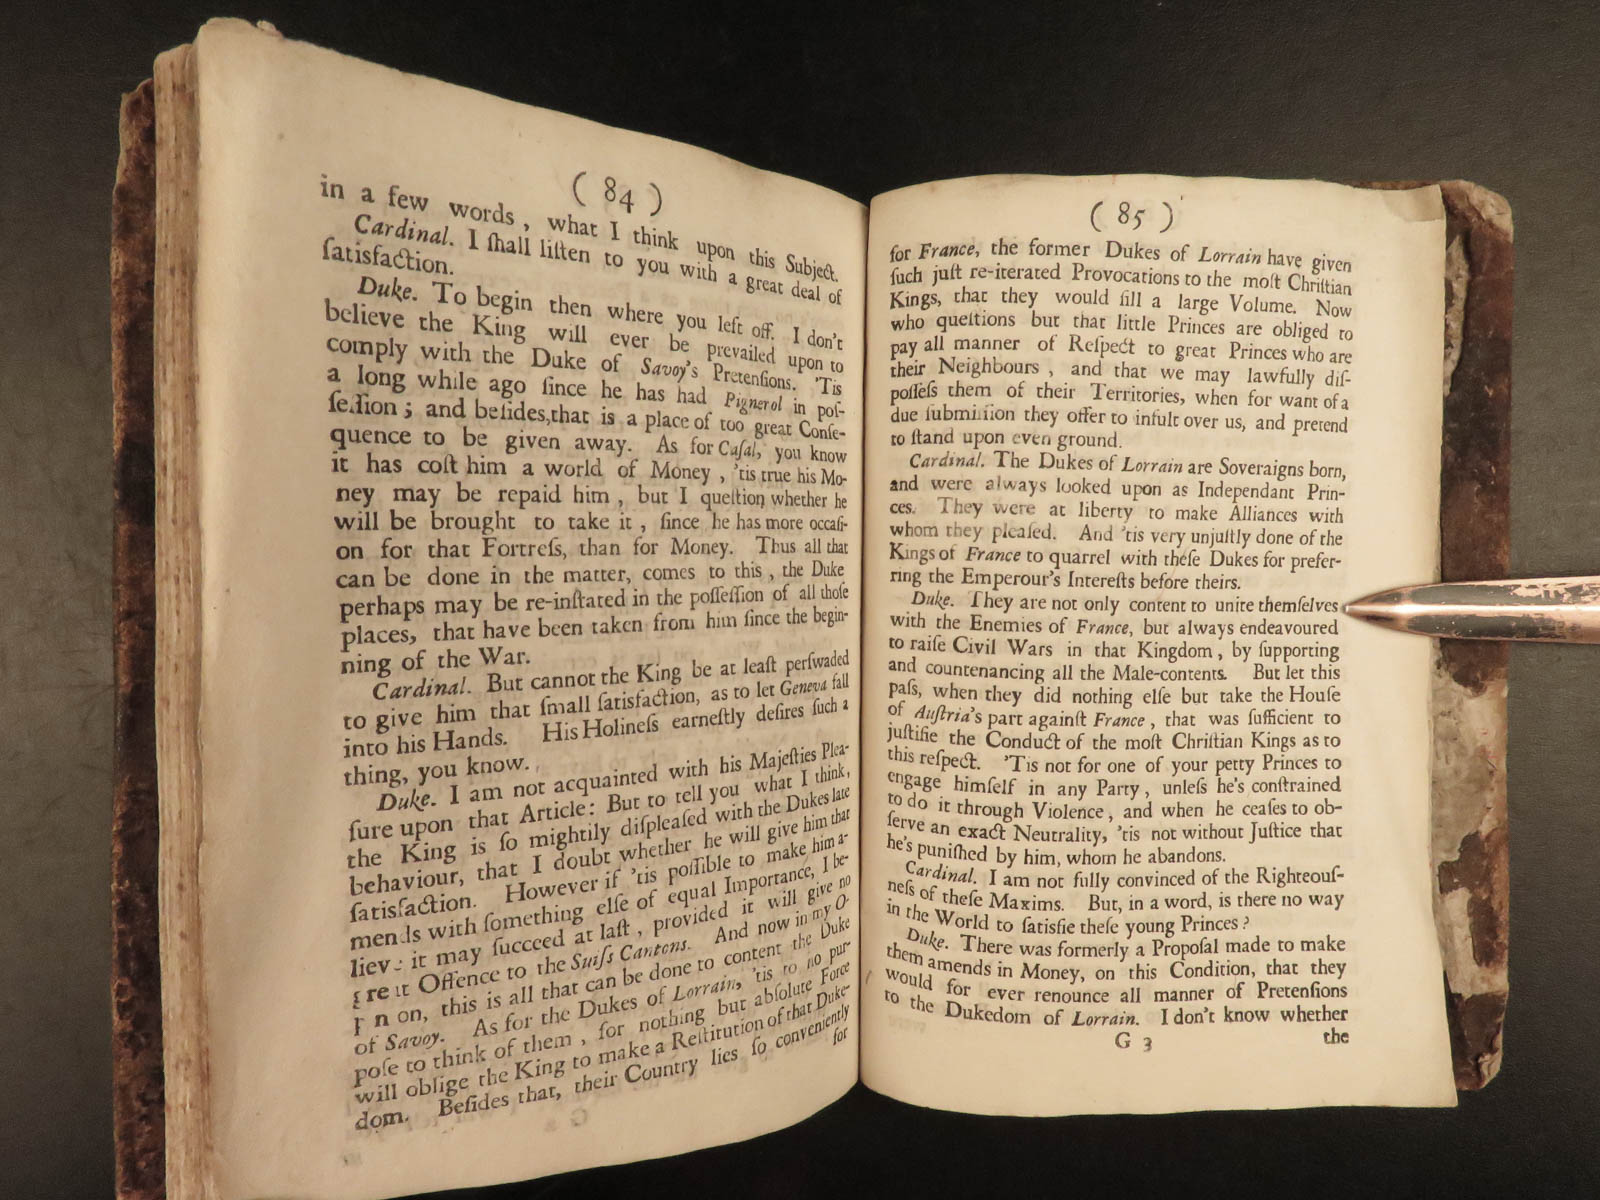 ( 84 )
in a few words, what I think upon this Subject.
Cardinal. I ſhall liſten to you with a great deal of
ſatisfaction.
Duke. To begin then where you left off. I don't
believe the King will ever be prevailed upon to
comply with the Duke of Savoy's Pretenſions. 'Tis
a long while ago ſince he has had Pignerol in poſ-
ſeſſion; and beſides, that is a place of too great Conſe-
quence to be given away. As for Caſal, you know
it has coſt him a world of Money, 'tis true his Mo-
ney may be repaid him, but I queſtion whether he
will be brought to take it, ſince he has more occaſi-
on for that Fortreſs, than for Money. Thus all that
can be done in the matter, comes to this, the Duke
perhaps may be re-inſtated in the poſſeſſion of all thoſe
places, that have been taken from him ſince the begin-
ning of the War.
Cardinal. But cannot the King be at leaſt perſwaded
to give him that ſmall ſatisfaction, as to let Geneva fall
into his Hands. His Holineſs earneſtly deſires ſuch a
thing, you know.
Duke. I am not acquainted with his Majeſties Plea-
ſure upon that Article: But to tell you what I think,
the King is ſo mightily diſpleaſed with the Dukes late
behaviour, that I doubt whether he will give him that
ſatisfaction. However if 'tis poſſible to make him a-
mends with ſomething elſe of equal Importance, I be-
lieve it may ſucceed at laſt, provided it will give no
great Offence to the Suiſs Cantons. And now in my O-
pinion, this is all that can be done to content the Duke
of Savoy. As for the Dukes of Lorrain, 'tis to no pur-
poſe to think of them, for nothing but abſolute Force
will oblige the King to make a Reſtitution of that Duke-
dom. Beſides that, their Country lies ſo conveniently
for
( 85 )
for France, the former Dukes of Lorrain have given
ſuch juſt re-iterated Provocations to the moſt Chriſtian
Kings, that they would fill a large Volume. Now
who queſtions but that little Princes are obliged to
pay all manner of Reſpect to great Princes who are
their Neighbours, and that we may lawfully diſ-
poſſeſs them of their Territories, when for want of a
due ſubmiſſion they offer to inſult over us, and pretend
to ſtand upon even ground.
Cardinal. The Dukes of Lorrain are Soveraigns born,
and were always looked upon as Independant Prin-
ces. They were at liberty to make Alliances with
whom they pleaſed. And 'tis very unjuſtly done of the
Kings of France to quarrel with theſe Dukes for prefer-
ring the Emperour's Intereſts before theirs.
Duke. They are not only content to unite themſelves
with the Enemies of France, but always endeavoured
to raiſe Civil Wars in that Kingdom, by ſupporting
and countenancing all the Male-contents. But let this
paſs, when they did nothing elſe but take the Houſe
of Auſtria's part againſt France, that was ſufficient to
juſtifie the Conduct of the moſt Chriſtian Kings as to
this reſpect. 'Tis not for one of your petty Princes to
engage himſelf in any Party, unleſs he's conſtrained
to do it through Violence, and when he ceaſes to ob-
ſerve an exact Neutrality, 'tis not without Juſtice that
he's puniſhed by him, whom he abandons.
Cardinal. I am not fully convinced of the Righteouſ-
neſs of theſe Maxims. But, in a word, is there no way
in the World to ſatisfie theſe young Princes?
Duke. There was formerly a Propoſal made to make
them amends in Money, on this Condition, that they
would for ever renounce all manner of Pretenſions
to the Dukedom of Lorrain. I don't know whether
G 3 the